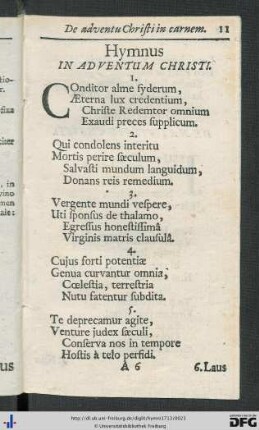 De adventu Christi in carnem. 11
Hymnus
IN ADVENTUM CHRISTI.
1.
COnditor alme syderum,
Æterna lux credentium,
Christe Redemtor omnium
Exaudi preces supplicum.
2.
Qui condolens interitu
Mortis perire sæculum,
Salvasti mundum languidum,
Donans reis remedium.
3.
Vergente mundi vespere,
Uti sponsus de thalamo,
Egressus honestissimâ
Virginis matris clausulâ.
4.
Cujus forti potentiæ
Genua curvantur omnia,
Cœlestia, terrestria
Nutu fatentur subdita.
5.
Te deprecamur agite,
Venture judex sæculi,
Conserva nos in tempore
Hostis à telo perfidi.
A 6 6. Laus
© Universitätsbibliothek Freiburg
DFG